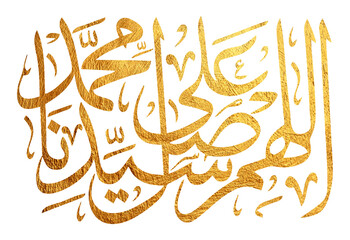 اللهم صل على سيدنا محمد